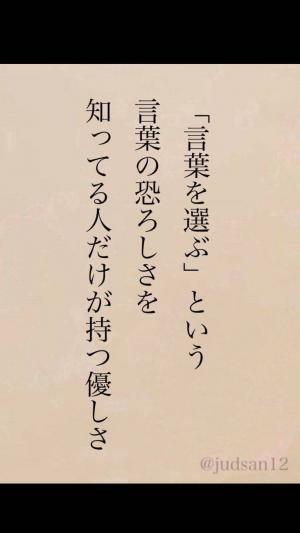 「言葉を選ぶ」という
言葉の恐ろしさを
知ってる人だけが持つ優しさ
@judsan12